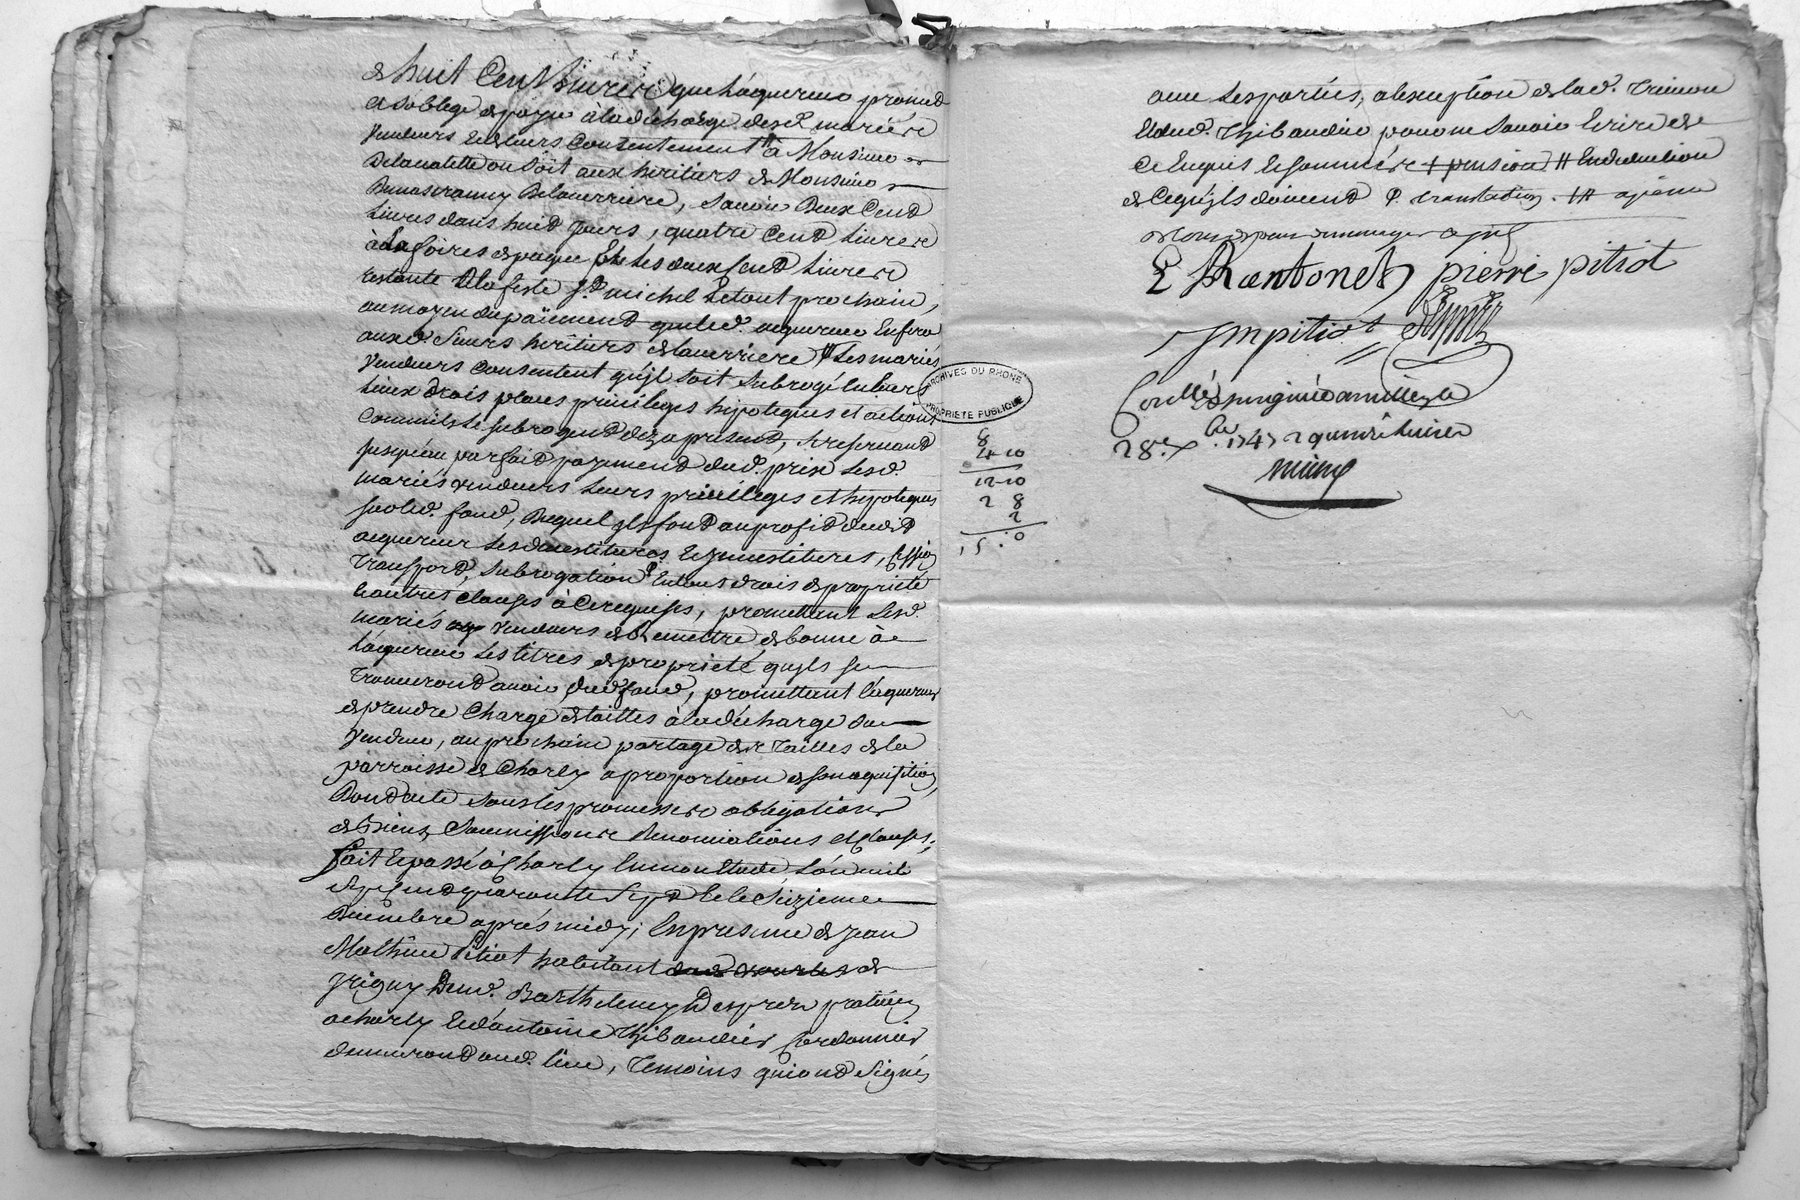 de huit Cent Livres que l'aquereur promet
et s'oblege de payer à la décharge desd. mariés
vendeurs et de leurs consentement à Monsieur
Delavalette ou soit aux heritiers de Monsieur
Delaverriere, savoir Deux Cent
Livres dans huit jours, quatre Cent Livres
à la foires de paque et les deux Cent Livres
restante à la feste St michel le tout prochain,
au moyen du païement que led. aquereur en fera
auxd. sieurs heritiers de laverriere les mariés
vendeurs consentent qu'il soit subrogé en leurs
lieux drois places priviléges hipoteques et actions
comme ils le subrogent déz a présent, se reservant
jusqu'au parfait payement dud. prix lesd.
mariés vendeurs leurs priviléges et hipoteques
sur led. fond, Duquel ils font au profit dudit
aquereur les devestitures et investitures, Cession
Transport, subrogation en tous drois de proprieté
et autres clauses à Ce requises, promettant lesd.
mariés vendeurs de remettre de bonne à
l'aquereur les titres de proprieté qu'ils se
trouveront avoir dud. fond, promettant l'aquereur
de prendre Charge de tailles à la décharge du
vendeur, au prochain partage des tailles de la
parroisse de Charly a proportion de son aquisition,
Dont acte sous les promesses obligations
de biens, soumissions Renonciations et Clauses,
fait et passé à Charly en mon Etude, L'an mil
sept Cent quarante sept et le seizieme
Décembre aprés midy, en presence de jean
Mathieu Pitiot habitant de
grigny Demr. Barthelemy praticien
a charly et d'antoine Thibaudier Cordonnier
demeurant aud. lieu, Temoins qui ont signés
avec les parties, a l'exception de lad. Trimon
et dud. Thibaudier pour ne savoir Ecrire de
ce enquis et sommés + pension # En deduction
de ce qu'ils doivent translation
P Rantonet pierre pitiot
jm pitiot
Conllé
28.e xbre 1747
ARCHIVES DU RHONE
PROPRIETE PUBLIQUE
8
4-10
12-10
2 8
2
15.0